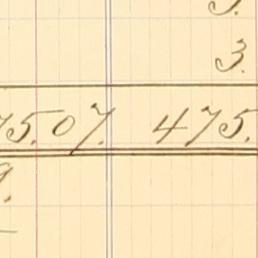 3.
75.07. 475.
9.